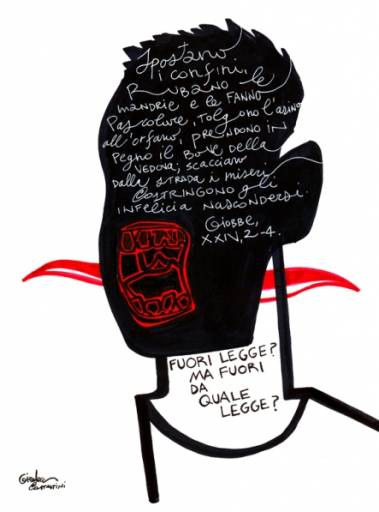 Spostano
i confini,
RUBANO le
mandrie e le FANNO
Pascolare, Tolgono l'asino
all'orfano, prendono in
pegno il Bove della
vedova; scacciano
dalla strada i miseri
Costringono gli
infelici a nascondersi.
Giobbe,
XXIV, 2-4.
FUORI LEGGE?
MA FUORI
DA
QUALE
LEGGE?
Costantini